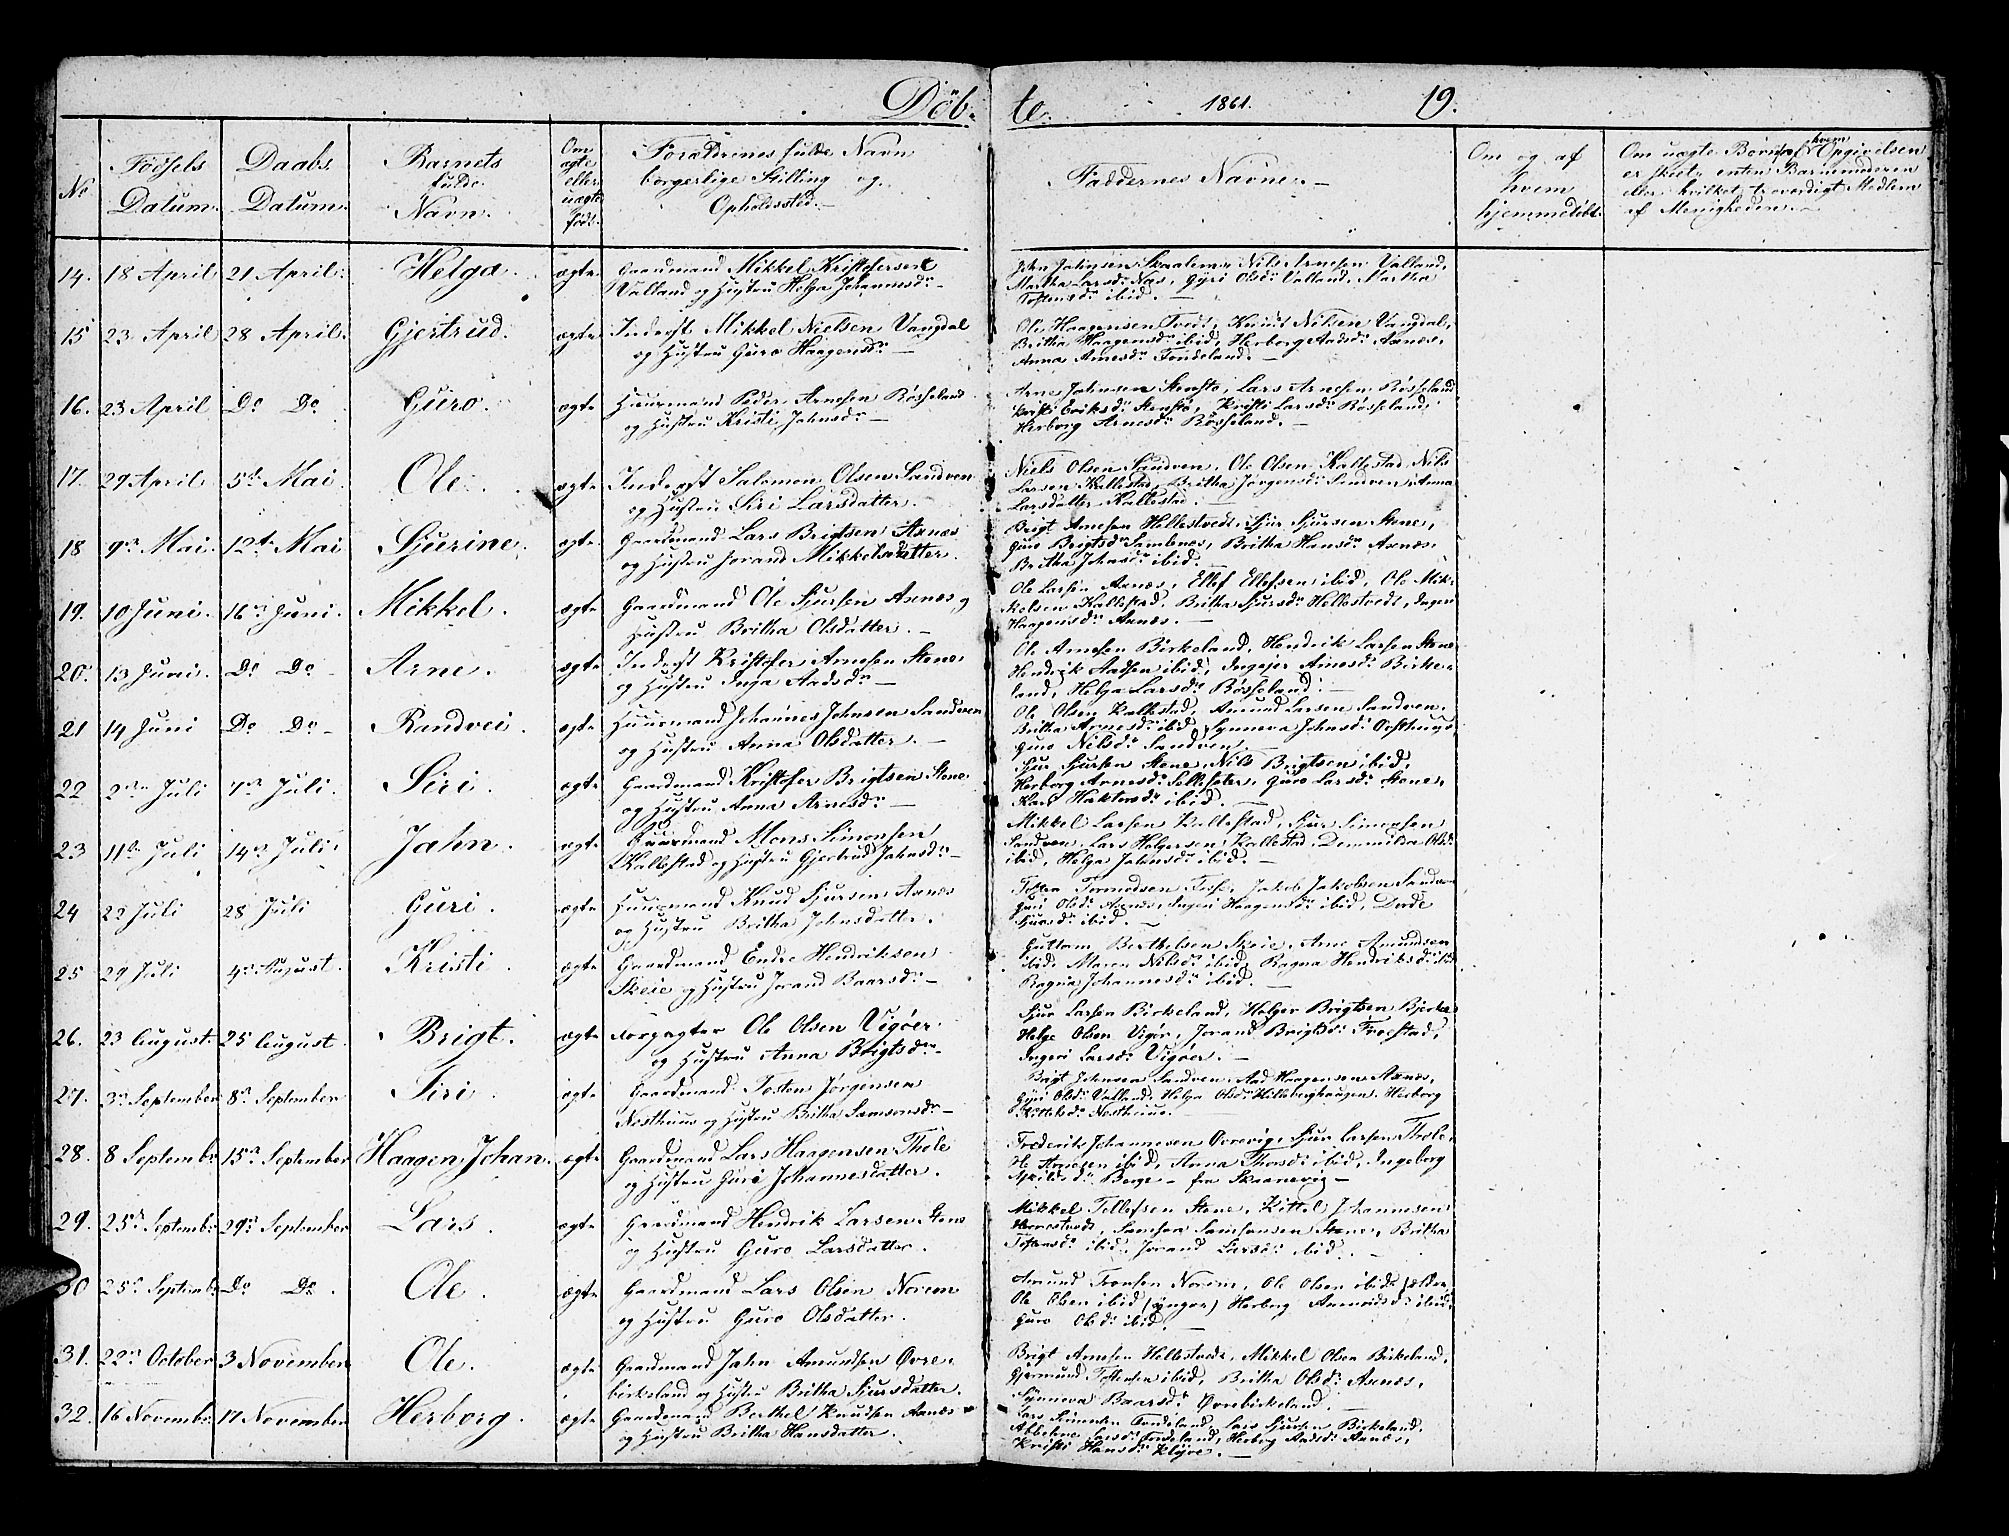 Döb- te. 1861. 19.
No
Födsels Datum.
Daabs Datum.
Barnets fulde Navn.
Om ægte eller uægte födt.
Forældrenes fulde Navn borgerlige Stilling og Opholdssted.
Faddernes Navne.
Om og af hvem hjemmedöbt.
Om uægte Börn, af hvem Opgivelsen er skeet, enten Barnemoderen eller hvilket troværdigt Medlem af Menigheden.
14. 18 April 21 April. Helga. ægte Gaardmand Mikkel Kristofersen
Valland og Hustru Helga Johannesdr
John Johnsen Skaalem, Nils Arnesen Valland,
Martha Larsdr Næs, Gyri Olsdr Valland, Martha
Tostensdr ibid.
15 23 April 28 April. Gjertrud. ægte Inderst Mikkel Nielsen Vangdal
og Hustru Guro Haagensdr
Ole Haagensen Tvedt, Knud Nilsen Vangdal,
Britha Haagensdr ibid, Herborg Aadsdr Axnæs,
Anna Arnesdr Tondeland.
16. 23 April Do Do Guro. ægte Huusmand Peder Arnesen Røsseland
og Hustru Kristi Johnsdr
Arne Johnsen Stensto, Lars Arnesen Røsseland
Kristi Eriksdr Stensto, Kristi Larsdr Røsseland,
Herborg Arnesdr Røsseland.
17. 29 April 5te Mai Ole. ægte Inderst Salomon Olsen Sandven
og Hustru Siri Larsdatter
Niels Olsen Sandven, Ole Olsen Kallestad, Nils
Larsen Kallestad, Britha Jørgensdr Sandven, Anna
Larsdatter Kallestad
18 9de Mai. 12te Mai Sjurine. ægte Gaardmand Lars Brigtsen Axnæs
og Hustru Jorand Mikkelsdatter.
Brigt Arnesen Hellestvedt, Sjur Sjursen Stene,
Guro Brigtsdr Sambnæs, Britha Hansdr Axnæs,
Britha Johnsdr ibid.
19. 10 Juni. 16de Juni. Mikkel. ægte Gaardmand Ole Sjursen Axnæs og
Hustru Britha Olsdatter.
Ole Larsen Axnæs, Ellef Ellefsen ibid, Ole Mik-
kelsen Kallestad, Britha Sjursdr Hellestvedt, Ingeri
Haagensdr Axnæs.
20. 13 Juni. Do Do Arne. ægte Inderst Kristofer Arnesen Stene
og Hustru Inga Aadsdr
Ole Arnesen Birkeland, Hendrik Larsen Stene
Hendrik Aadsen ibid, Ingejer Arnesdr Birke-
land, Helga Larsdr Røsseland.
21 14 Juni Do Do Randvei. ægte Huusmand Johannes Johnsen Sandven
og Hustru Anna Olsdatter.
Ole Olsen Kallestad, Amund Larsen Sandven,
Britha Arnesdr ibid, Synneva Johnsdr Oosthuus,
Guro Nilsdr Sandven.
22 2den Juli 7de Juli. Siri. ægte Gaardmand Kristofer Brigtsen Stene
og Hustru Anna Arnesdr
Sjur Sjursen Stene, Nils Brigtsen ibid,
Herborg Arnesdr, Guro Larsdr Stene,
ibid.
23 11te Juli 14de Juli. Jahn. ægte Gaardmand Mons Simonsen
Kallestad og Hustru Gjertrud Jahnsdr
Mikkel Larsen Kallestad, Sjur Simonsen
Sandven, Lars Helgesen Kallestad, Olsdr
ibid, Helga Johnsdr ibid.
24 22 Juli 28 Juli Guri. ægte Huusmand Knud Sjursen Axnæs
og Hustru Britha Johnsdatter.
Tosten Tormodsen Fosse, Jakob Jakobsen Sandven
Guri Olsdr Axnæs, Ingeri Haagensdr ibid, Dorde
Sjursdr ibid.
25 29 Juli 4de August. Kristi. ægte Gaardmand Endre Hendriksen
Skeie og Hustru Jorand Baarsdr
Guttom Berthelsen Skeie, Arne Amundsen
ibid, Maren Nilsdr ibid, Ragna Hendriksdr ibid
Ragna Johannesdr ibid.
26. 23 August. 25 August. Brigt. ægte Forpagter Ole Olsen Vigøer
og Hustru Anna Brigtsdr
Sjur Larsen Birkeland, Holger Brigtsen Bjerke
Helge Olsen Vigøer, Jorand Brigtsdr,
Ingeri Larsdr Vigøer.
27. 3de September 8de September Siri. ægte Gaardmand Tosten Jørgensen
Nesthuus og Hustru Britha Samsonsdr
Brigt Johnsen Sandven, Aad Haagensen Axnæs,
Gyri Olsdr Valland, Helga Olsdr Hilleberghaugen, Herborg
Nesthuus.
28. 8 Septembr 15de September Haagen Johan. ægte Gaardmand Lars Haagensen Thole
og Hustru Guri Johannesdatter.
Frederik Johannesen Ovrevig, Sjur Larsen Thole,
Ole Arnesen ibid, Anna Thorsdr ibid, Ingeborg
Berge - fra Skaanevig -
29. 25de Septembr 29de September Lars. ægte Gaardmand Hendrik Larsen Stene
og Hustru Guro Larsdatter.
Mikkel Tellefsen Stene, Kittel Johannesen
, Samson Samsonsen Stene, Britha
Tostensdr ibid, Jorand Larsdr ibid.
30 25de Septembr Do Do. Ole. ægte Gaardmand Lars Olsen Norem
og Hustru Guro Olsdatter.
Amund Tronsen Norem, Ole Olsen ibid (ældre,
Ole Olsen ibid (yngre) Herborg Amundsdr ibid,
Guro Olsdr ibid.
31. 22de October 3 November Ole. ægte Gaardmand Jahn Amundsen Øvre-
birkeland og Hustru Britha Sjursdatter.
Brigt Arnesen Hellestvedt, Mikkel Olsen Birkeland,
Gjermund Tostensen ibid, Britha Olsdr Axnæs,
Synneva Baarsdr Øvrebirkeland.
32. 16 Novembr 17 November Herborg. ægte Gaardmand Berthel Knudsen Axnæs
og Hustru Britha Hansdatter.
Lars Simonsen Tondeland, Lars Sjursen Birkeland,
Abbelone Larsdr Tondeland, Herborg Aadsdr Axnæs,
Kristi Hansdr Kløve.